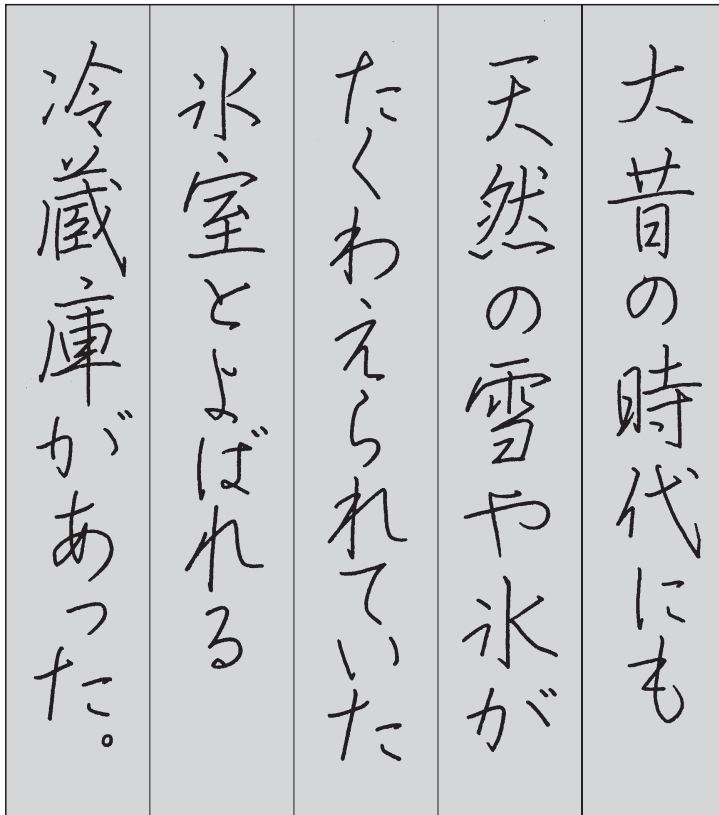 大昔の時代にも
天然の雪や氷が
たくわえられていた
氷室とよばれる
冷蔵庫があった。